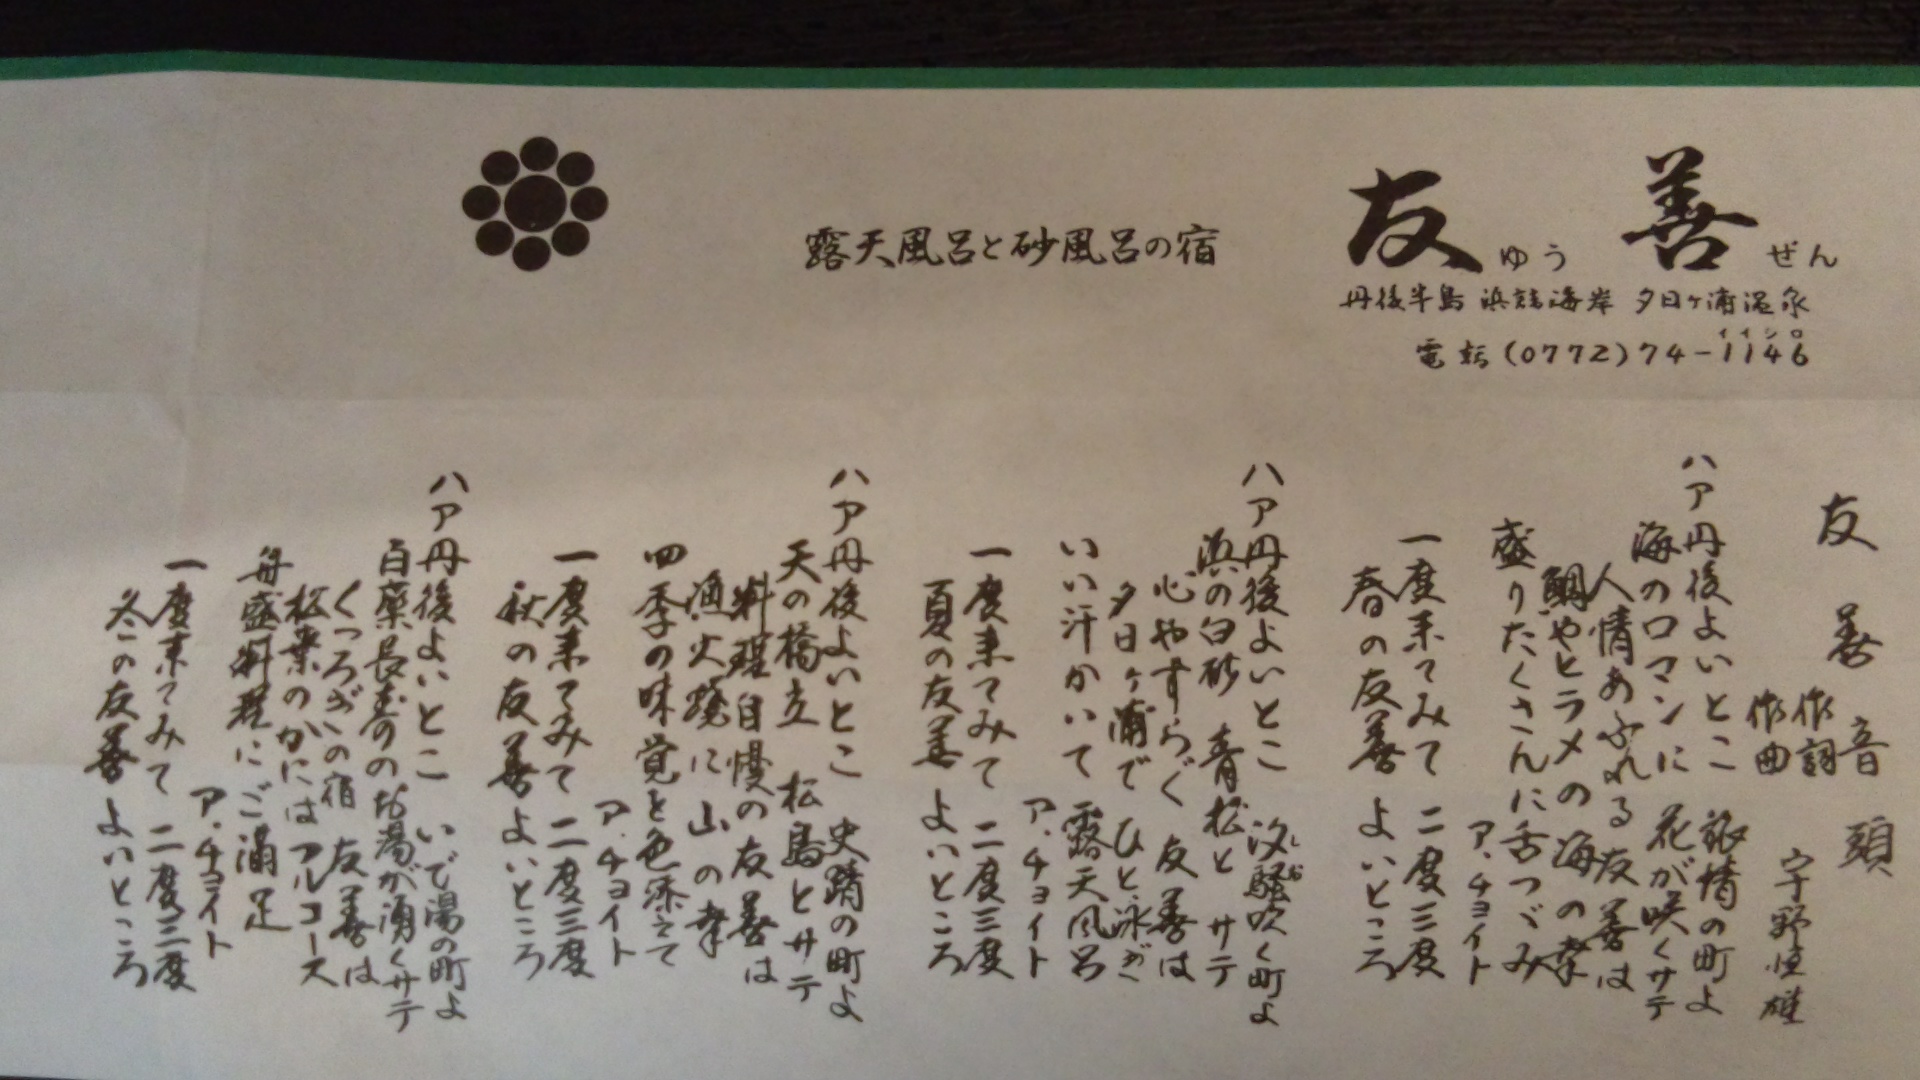 友善
ゆう ぜん
露天風呂と砂風呂の宿
丹後半島 浜詰海岸 夕日ヶ浦温泉
イイシロ
電話(0772)74-1146
友善音頭
作詞
作曲
宇野恒雄
ハア丹後よいとこ 旅情の町よ
海のロマンに 花が咲くサテ
人情あふれる友善は
鯛やヒラメの海の幸
盛りたくさんに舌つづみ
ア、チョイト
一度来てみて 二度三度
春の友善 よいところ
ハア丹後よいとこ 汐騒吹く町よ
しお
浜の白砂 青松と サテ
心やすらぐ 友善は
夕日ヶ浦で ひと泳ぎ
いい汗かいて 露天風呂
ア、チョイト
一度来てみて 二度三度
夏の友善 よいところ
ハア丹後よいとこ 史蹟の町よ
天の橋立 松島とサテ
料理自慢の友善は
漁火焼に 山の幸
四季の味覚と色添えて
ア、チョイト
一度来てみて 二度三度
秋の友善 よいところ
ハア丹後よいとこ いで湯の町よ
百薬長寿のお湯が湧くサテ
くつろぎの宿 友善は
松葉のかにはフルコース
舟盛料理にご満足
ア、チョイト
一度来てみて 二度三度
冬の友善 よいところ